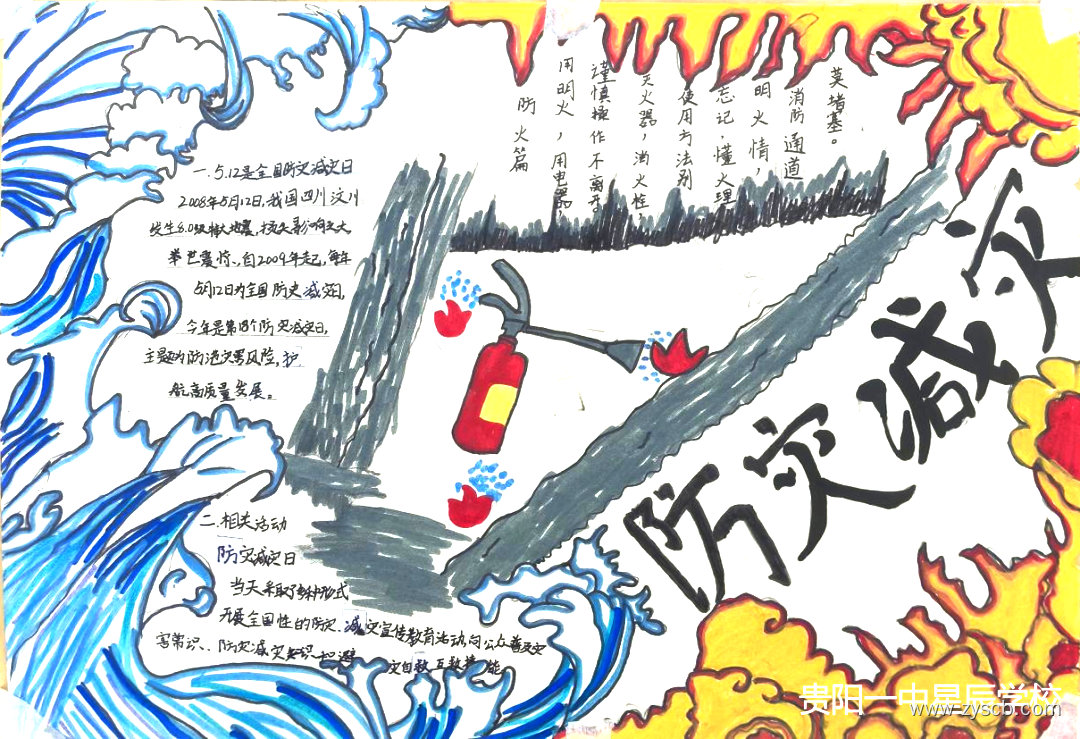 防火篇
用明火,用电器,
谨慎操作不离开。
灭火器,消火栓,
使用方法别
忘记.懂火理
明火情,
消防通道
莫堵塞。
一.5.12是全国防灾减灾日
2008年5月12日,我国四川汶川
发生8.0级特大地震,损失影响之大
举世震惊、自2009年起,每年
5月12日为全国防灾减灾日,
今年是第13个防灾减灾日,
主题为防范灾害风险,护
航高质量发展。
防灾减灾
二.相关活动
防灾减灾日
当天采取了多种形式
开展全国性的防灾、减灾宣传教育活动,向公众普及灾
害常识、防灾减灾知识和避灾自救互救技能
贵阳一中星辰学校
www.zyscb.com